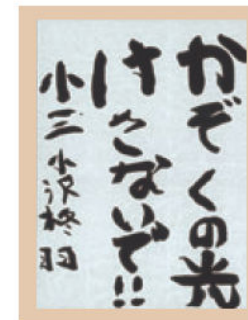 かぞくの光
けさないで!!
小三 小沢柊羽